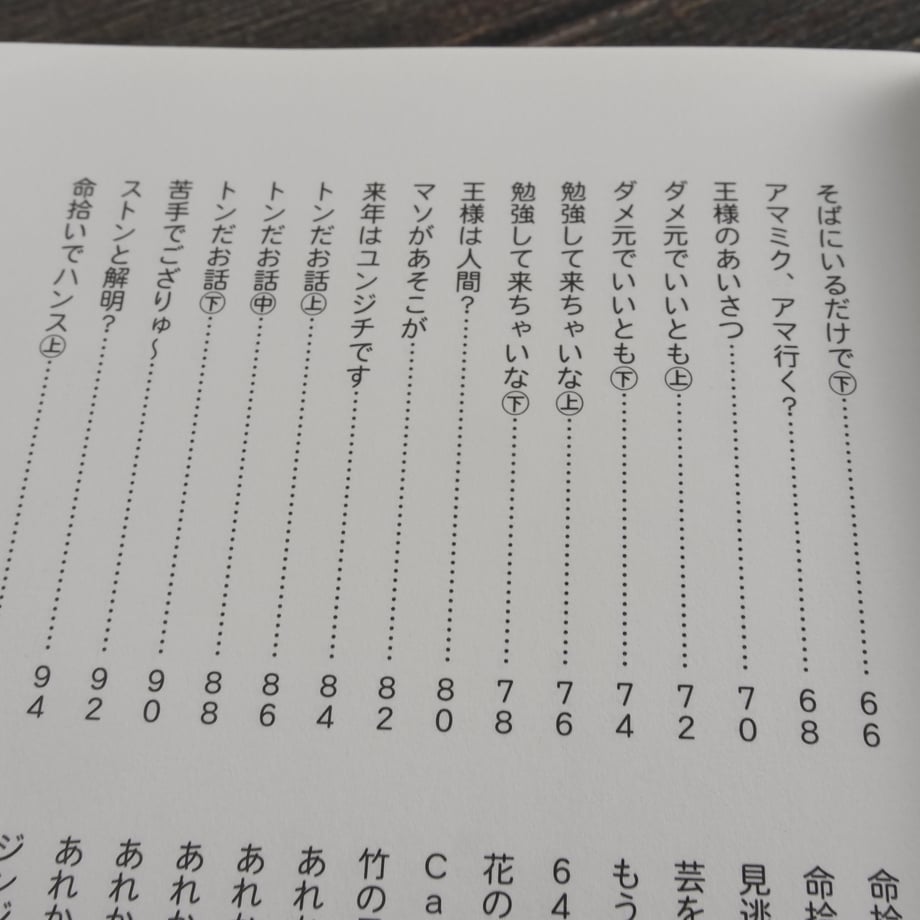 そばにいるだけで㊦……66
アマミク、アマ行く？……68
王様のあいさつ……70
ダメ元でいいとも㊤……72
ダメ元でいいとも㊦……74
勉強して来ちゃいな㊤……76
勉強して来ちゃいな㊦……78
王様は人間？……80
マソがあそこが……82
来年はユンジチです……84
トンだお話㊤……86
トンだお話㊥……88
トンだお話㊦……90
苦手でござりゅ〜……92
ストンと解明？……94
命拾いでハンス㊤
命拾
命拾
見逃
芸を
もう
64
花の
Ca
竹の
あれ
あれか
あれか
あれか
あれか